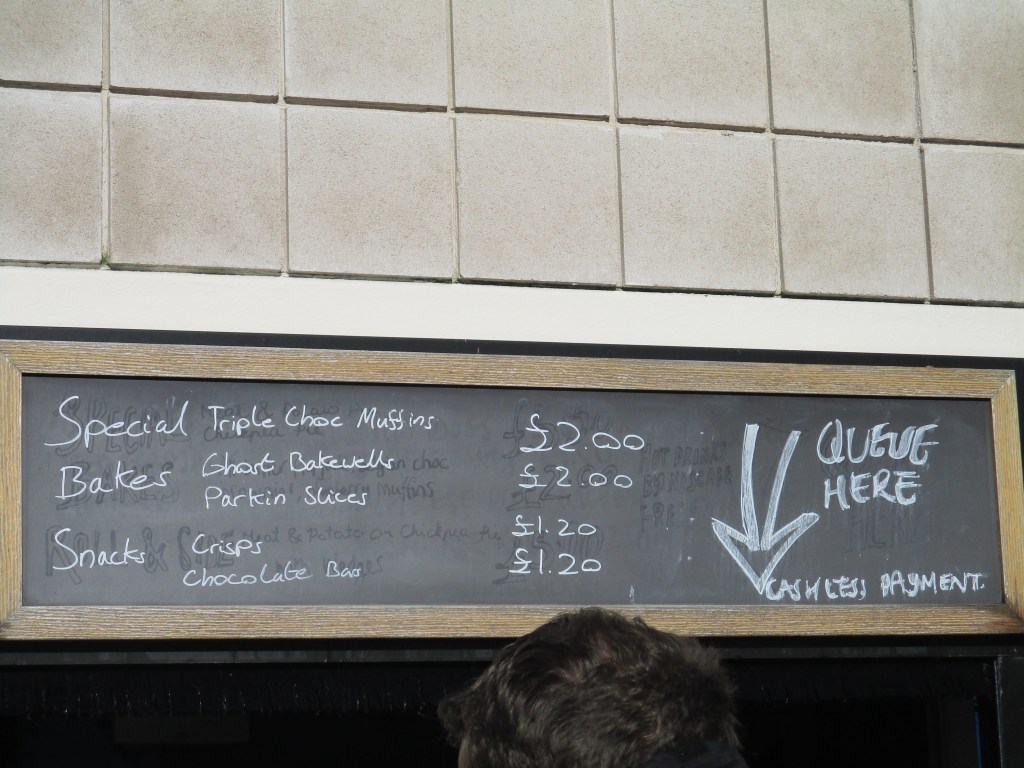 Special Triple Choc Muffins £2.00
Bakes Ghost Bakewells £2.00
Parkin Slices
Snacks Crisps £1.20
Chocolate Bar £1.20
QUEUE
HERE
CASHLESS PAYMENT.